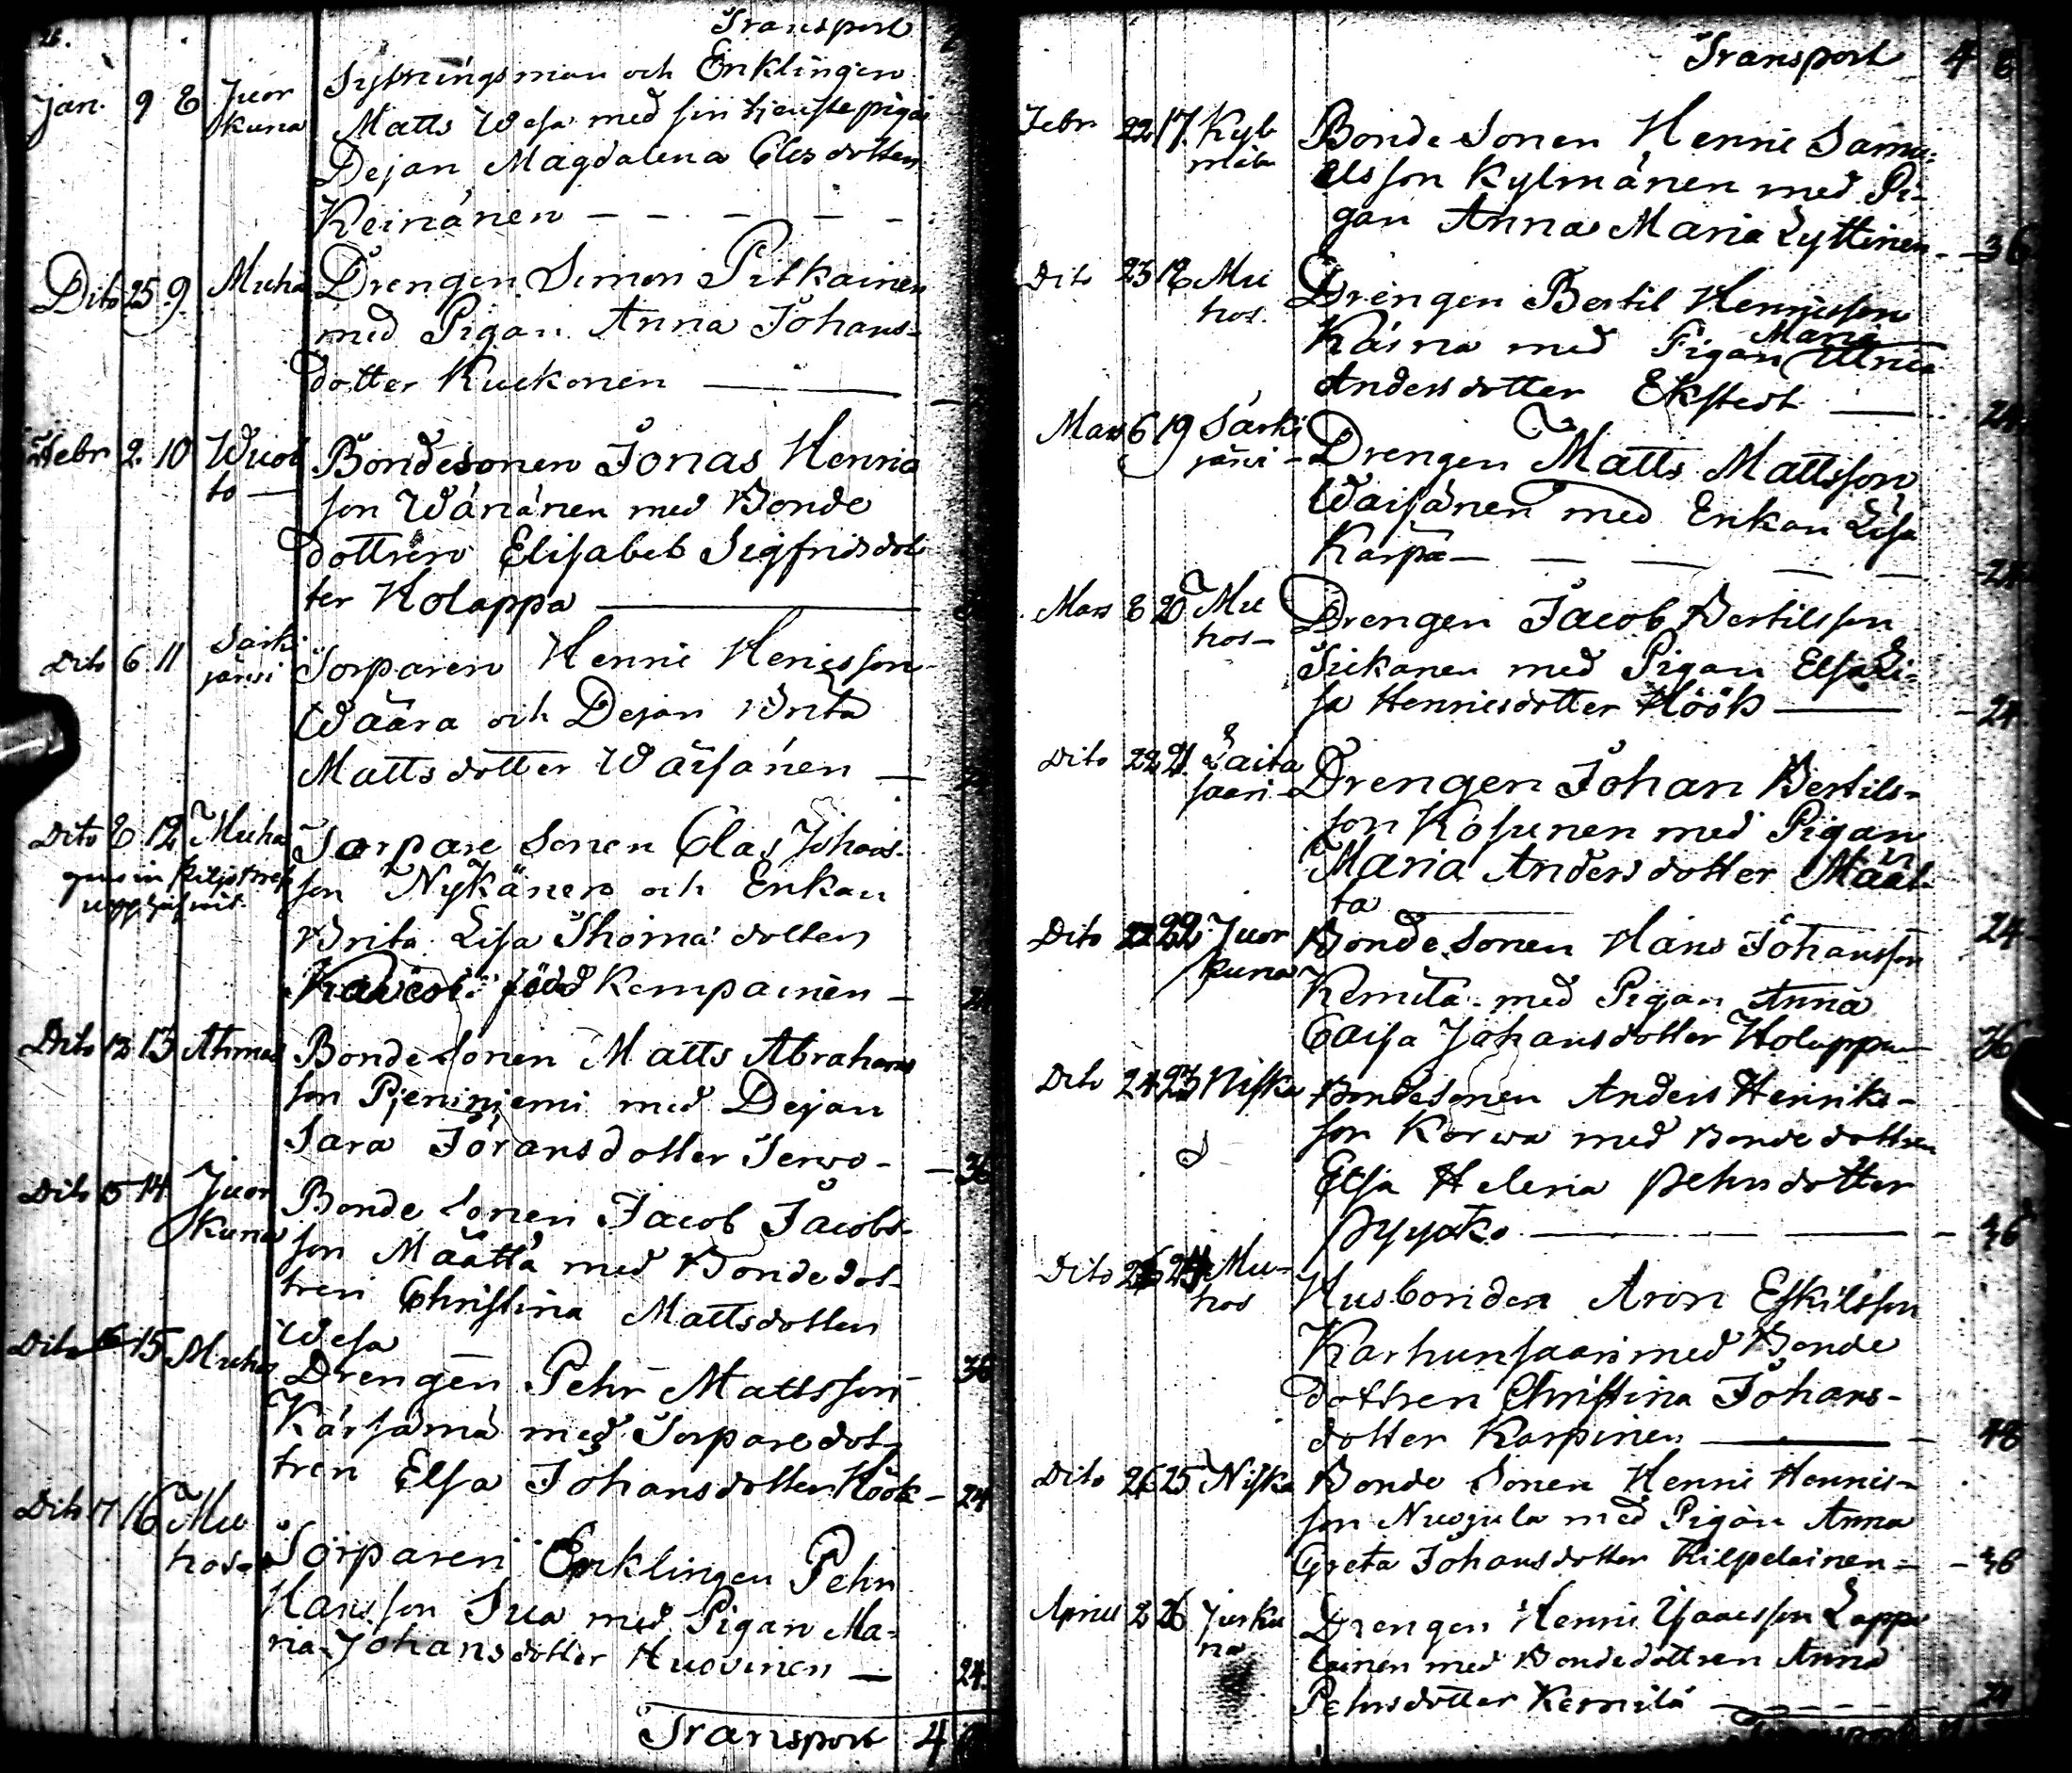 Transport
Jan. 9 8 Juor Sytningsman och Enklingen
kuna Matts Wesa med sin tjenstepiga
Dejan Magdalena Clesdotter
Keinänen
Dito 25 9. Muhos Drengen Simon Pitkainen
med Pigan Anna Johans-
dotter Kuckonen
Febr 2. 10 Wuol Bondesonen Jonas Henric
to son Wänänen med Bonde
dottren Elisabet Sigfridsdot
ter Holappa
Dito 6 11 Särki Torparen Henric Henricsson
järvi Wäära och Dejan Brita
Mattsdotter Wäisänen
Dito 8 12 Muhos Torpare Sonen Clas Johans-
son Nykänen och Enkan
Brita Lisa Thomædotter
född Kempainen
Dito 13 13 Ahmas Bondesonen Matts Abrahams
son Pjeniniemi med Dejan
Sara Göransdotter Terwo - 36
Dito 15 14 Juor Bonde Sonen Jacob Jacobs-
kuna son Määttä med Bondedot-
tren Christina Mattsdotter
Wesa 36
Dito 15 Muhos Drengen Pehr Mattsson
Kärsämä med Torparedot-
tren Elsa Johansdotter Höök - 24
Dito 17 16 Mu
hos Torparen Enklingen Pehr
Hansson Sua med Pigan Ma-
ria Johansdotter Huovinen — 24.
Transport 4
Transport 4 8
Febr 22 17. Kyl Bonde Sonen Henric Samu-
mälä elsson Kylmänen med Pi-
gan Anna Maria Lyttinen - 36
Dito 23 18 Mu Drengen Bertil Henricsson
hos. Käinä med Pigan Maria Ulrica
Andersdotter Ekstedt 24
Mars 6 19 Särki Drengen Matts Mattsson
järvi - Waisänen med Enkan Lisa
Karpa - 24
Mars 8 20 Mu Drengen Jacob Bertilsson
hos - Tiikanen med Pigan Elsa Li-
sa Henricsdotter Höök - 24.
Dito 22 21. Laita Drengen Johan Bertils-
saari - son Kosunen med Pigan
Maria Andersdotter Määt-
ta 24
Dito 22 22. Juor Bonde Sonen Hans Johansson
kuna Kemilä med Pigan Anna
Caisa Johansdotter Holappa 36
Dito 24 23 Niska Bondesonen Anders Henriks-
son Korwa med Bondedottren
Elsa Helena Pehrsdotter
Pyyckö 36
Dito 26 24 Mu-
hos Husbonden Aron Eskilsson
Karhunsaari med Bonde
dottren Christina Johans-
dotter Karpinen 48
Dito 26 25 Niska Bonde Sonen Henric Henrics-
son Nuojula med Pigan Anna
Greta Johansdotter Kilpelainen - 36
Aprill 2 26 Juorku Drengen Henric Isaacsson Lappa
na lainen med Bondedottren Anna
Pehrsdotter Kemilä
Transport